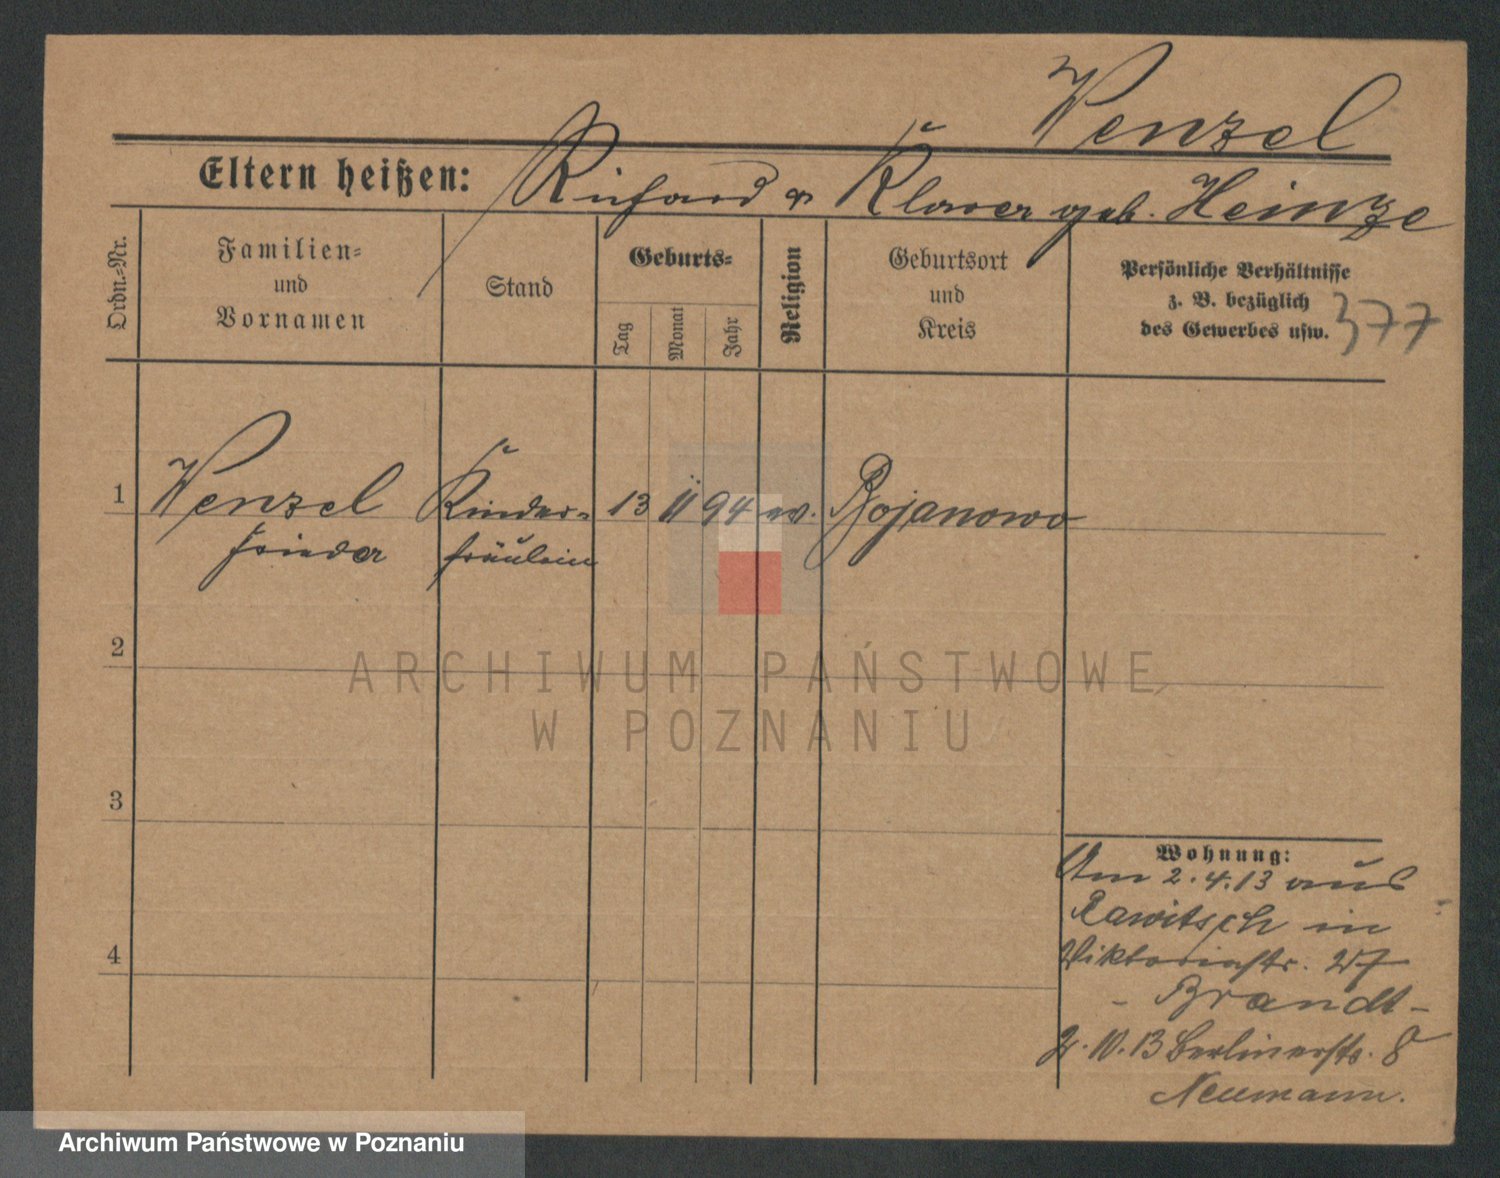 Wenzel
Eltern heißen: Richard & Klara geb. Heinze
Ordn.=Nr.
Familien=
und
Vornamen
Stand
Geburts=
Tag
Monat
Jahr
Religion
Geburtsort
und
Kreis
Persönliche Verhältnisse
z. B. bezüglich
des Gewerbes usw.
377
1 Wenzel Kinder= 13 11 94 ev. Bojanowo
Frieda fräulein
2
3
4
Wohnung:
Am 2.4.13 aus
Rawitsch in
Viktoriastr. 27
- Brandt -
2.10.13 Berlinerstr. 8
Neumann.
ARCHIWUM PAŃSTWOWE
W POZNANIU
Archiwum Państwowe w Poznaniu